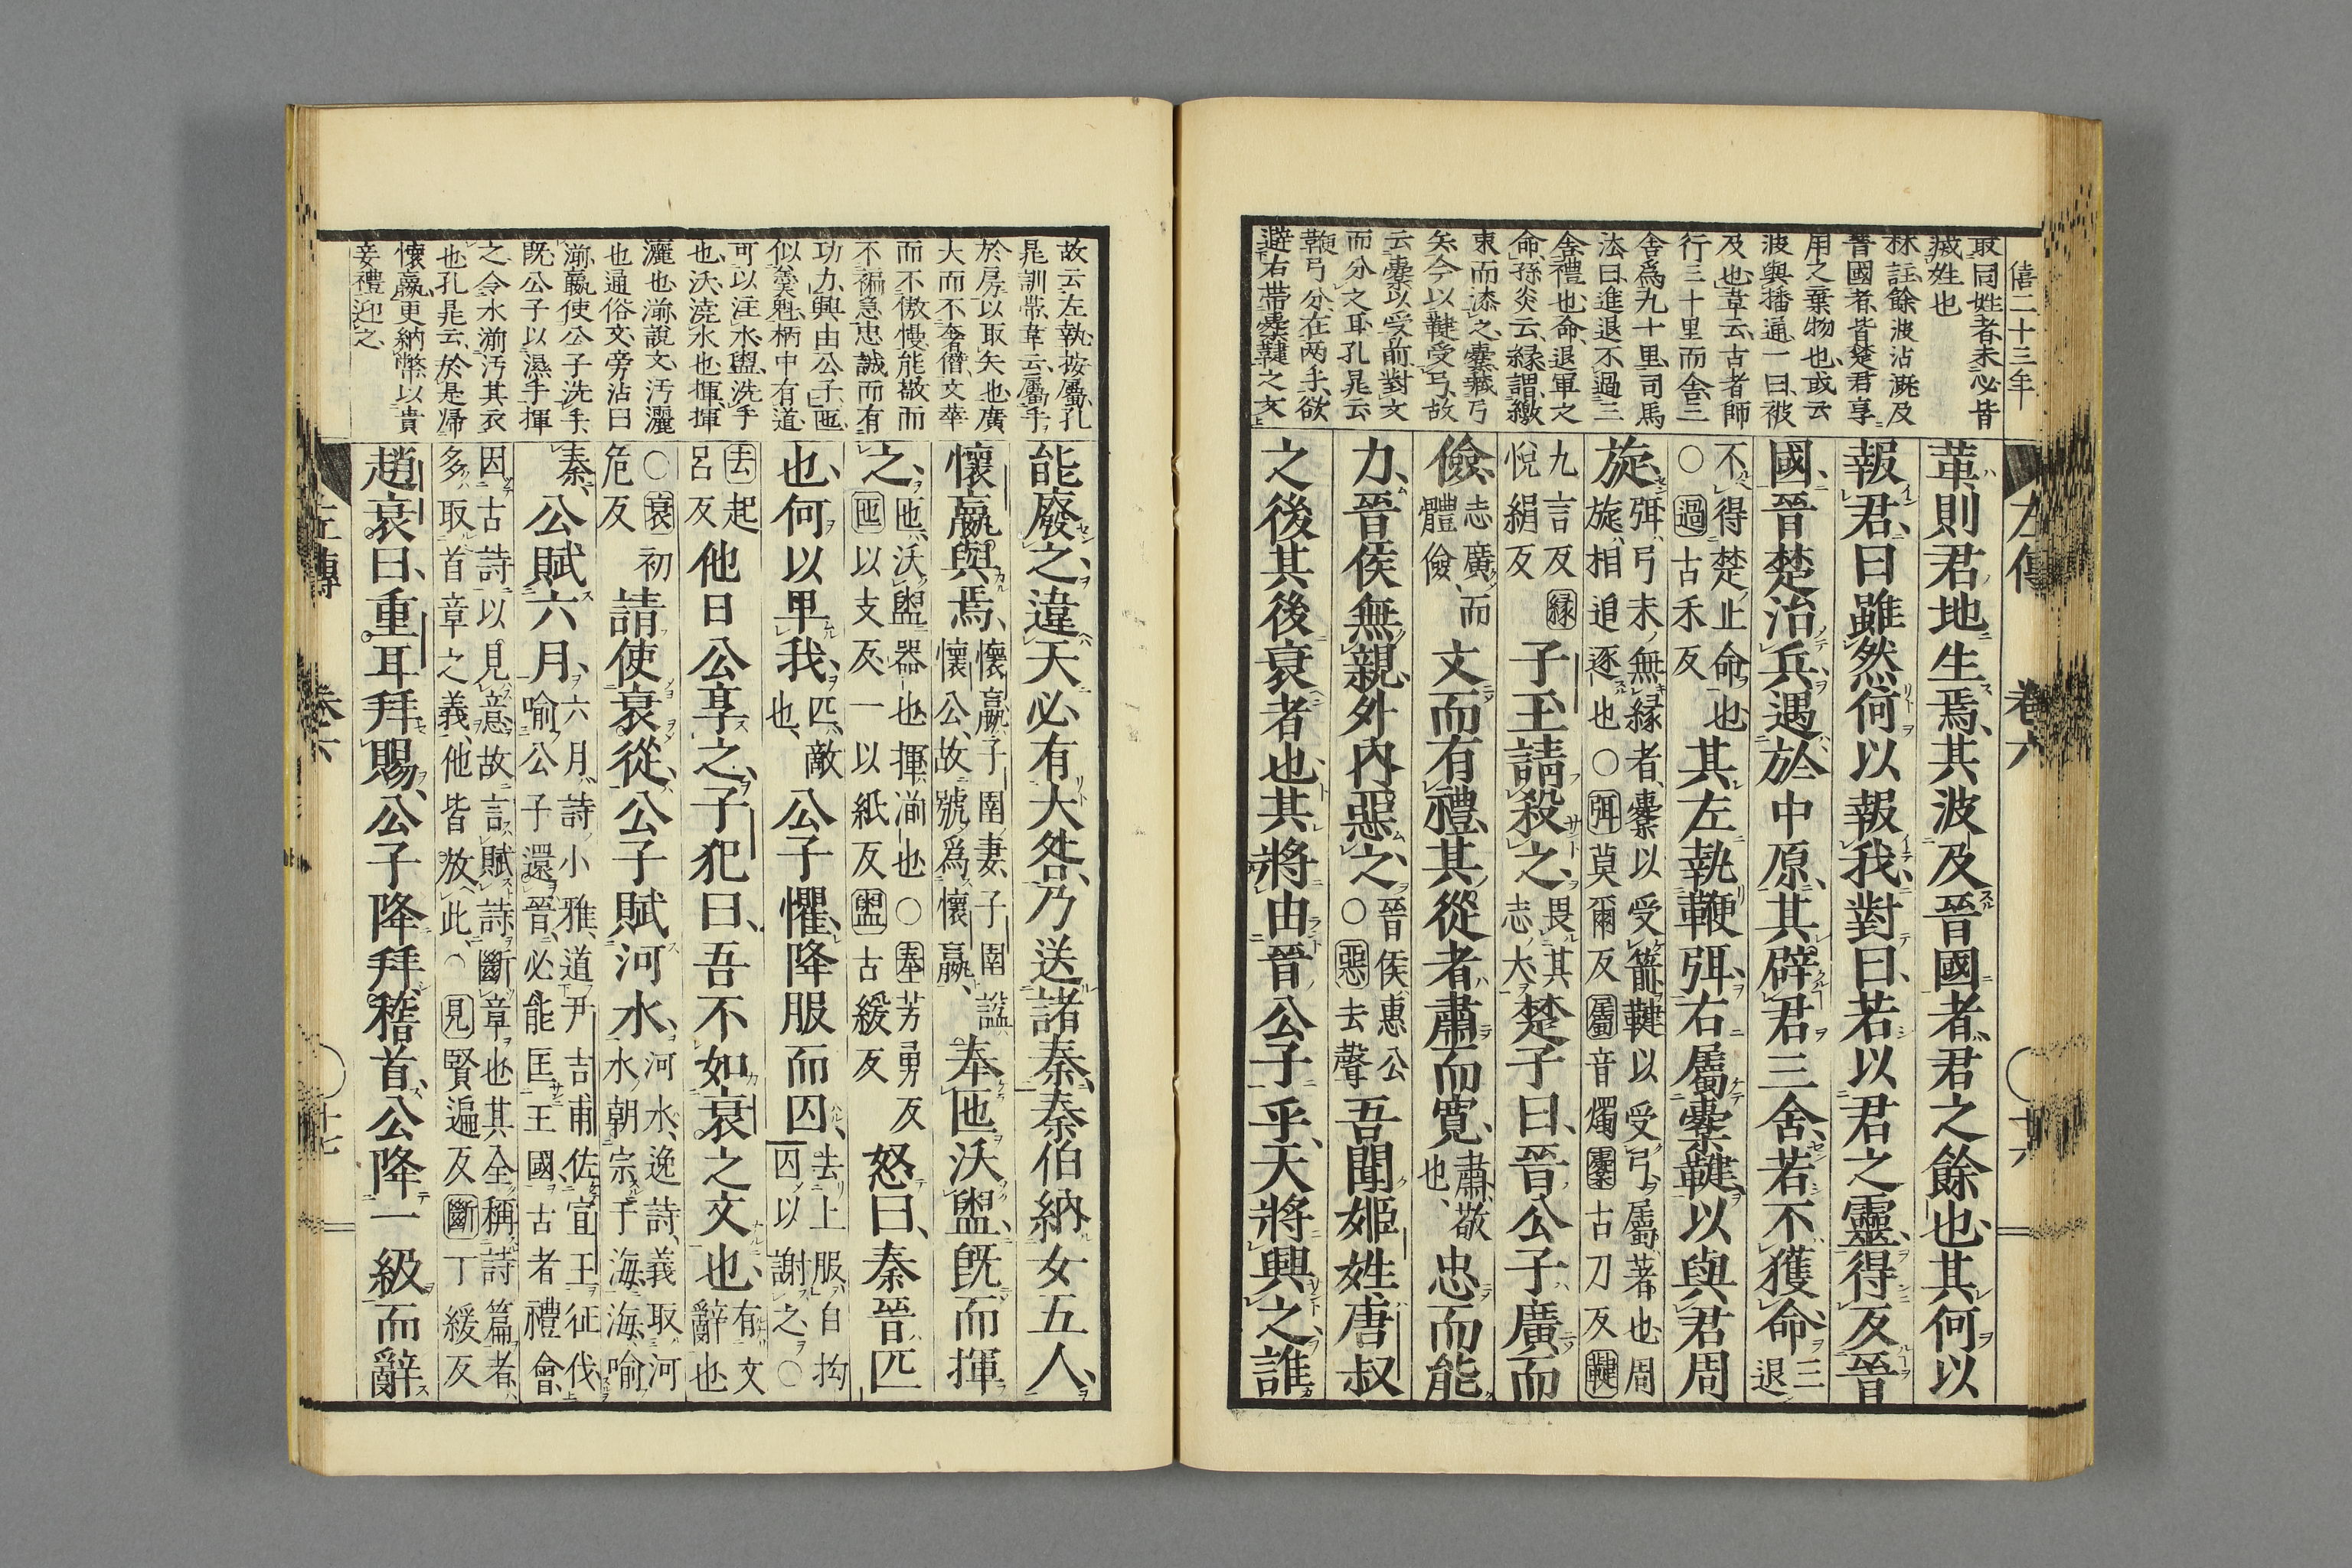 僖二十三年
取同姓者未必皆
滅姓也
林註餘波沾漑及
晉國者皆楚君享
用之棄物也或云
波與播通一曰被
及也韋云古者師
行三十里而舍三
舍爲九十里司馬
法曰進退不過三
舍禮也命退軍之
命孫炎云緣謂繳
束而漆之櫜藏弓
矢今以鞬受弓故
云櫜以受箭對文
而分之耳孔晁云
鞭弓分在両手欲
避右帶櫜鞬之文
左傳 卷六 十六
革則君地生焉其波及晉國者君之餘也其何以
報君曰雖然何以報我對曰若以君之靈得反晉
國晉楚治兵遇於中原其辟君三舍若不獲命三退
不得楚止命也
○過古禾反
其左執鞭弭右屬櫜鞬以與君周
旋
弭弓末無緣者櫜以受箭鞬以受弓屬著也周
旋相追逐也○弭莫爾反屬音燭櫜古刀反鞬
九言反緣
悅絹反
子玉請殺之
畏其
志大
楚子曰晉公子廣而
儉
志廣而
體儉
文而有禮其從者肅而寬
肅敬
也
忠而能
力晉侯無親外內惡之
晉侯惠公
○惡去聲
吾聞姬姓唐叔
之後其後衰者也其將由晉公子乎天將興之誰
故云左執按屬孔
晁訓帶韋云屬手
於房以取矢也廣
大而不奢僭文華
而不傲慢能敬而
不褊急忠誠而有
功力興由公子匜
似羹魁柄中有道
可以注水盥洗手
也沃澆水也揮揮
灑也湔說文汚灑
也通俗文旁沾曰
湔嬴使公子洗手
既公子以濕手揮
之令水湔汚其衣
也孔晁云於是歸
懷嬴更納幣以貴
妾禮迎之
能廢之違天必有大咎乃送諸秦秦伯納女五人
懷嬴與焉
懷嬴子圉妻子圉謚
懷公故號爲懷嬴
奉匜沃盥既而揮
之
匜沃盥器也揮湔也○奉芳勇反
匜以支反一以紙反盥古緩反
怒曰秦晉匹
也何以卑我
匹敵
也
公子懼降服而囚
去上服自拘
囚以謝之○
去起
呂反
他日公享之子犯曰吾不如衰之文也
有文
辭也
○衰初
危反
請使衰從公子賦河水
河水逸詩義取河
水朝宗于海海喻
秦
公賦六月
六月詩小雅道尹吉甫佐宣王征伐
喻公子還晉必能匡王國古者禮會
因古詩以見意故言賦詩斷章也其全稱詩篇者
多取首章之義他皆放此○見賢遍反斷丁緩反
趙衰曰重耳拜賜公子降拜稽首公降一級而辭
左傳 卷六 十七